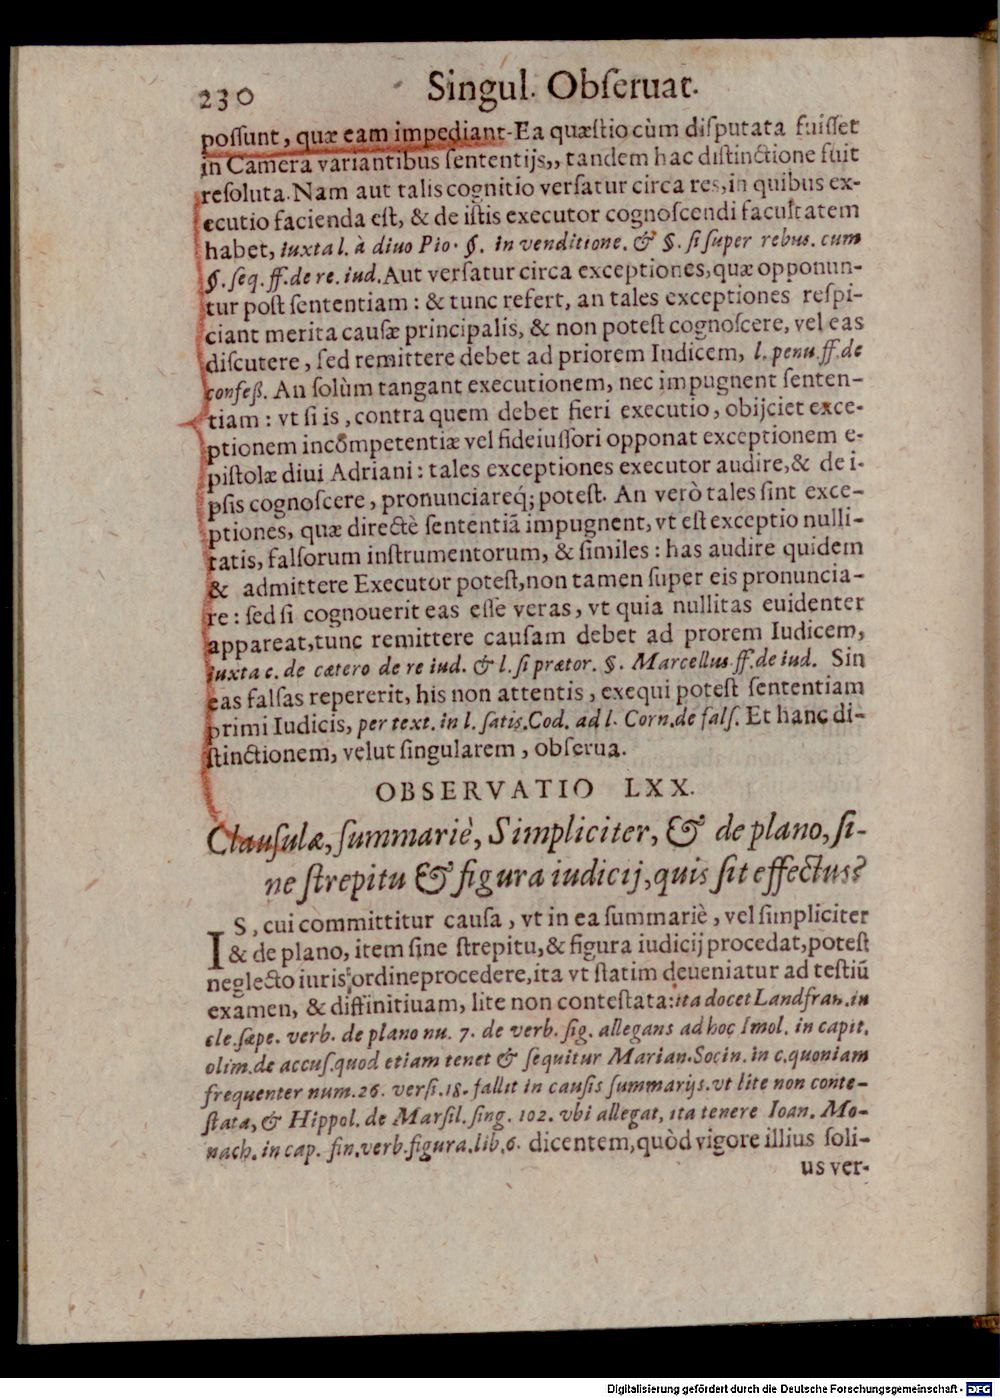 230 Singul. Obſeruat.
poſſunt, quæ eam impediant. Ea quæſtio cùm diſputata fuiſſet
in Camera variantibus ſententijs,, tandem hac diſtinctione fuit
reſoluta. Nam aut talis cognitio verſatur circa res, in quibus ex-
ecutio facienda eſt, & de iſtis executor cognoſcendi facultatem
habet, iuxta l. à diuo Pio. §. in venditione. & §. ſi ſuper rebus. cum
§. ſeq. ff. de re. iud. Aut verſatur circa exceptiones, quæ opponun-
tur poſt ſententiam: & tunc refert, an tales exceptiones reſpi-
ciant merita cauſæ principalis, & non poteſt cognoſcere, vel eas
diſcutere, ſed remittere debet ad priorem Iudicem, l. penu. ff. de
confeß. An ſolùm tangant executionem, nec impugnent ſenten-
tiam: vt ſi is, contra quem debet fieri executio, obijciet exce-
ptionem incõmpetentiæ vel fideiuſſori opponat exceptionem e-
piſtolæ diui Adriani: tales exceptiones executor audire, & de i-
pſis cognoſcere, pronunciareq́; poteſt. An verò tales ſint exce-
ptiones, quæ directè ſententiã impugnent, vt eſt exceptio nulli-
tatis, falſorum inſtrumentorum, & ſimiles: has audire quidem
& admittere Executor poteſt, non tamen ſuper eis pronuncia-
re: ſed ſi cognouerit eas eſſe veras, vt quia nullitas euidenter
appareat, tunc remittere cauſam debet ad prorem Iudicem,
iuxta c. de cætero de re iud. & l. ſi prætor. §. Marcellus. ff. de iud. Sin
eas falſas repererit, his non attentis, exequi poteſt ſententiam
primi Iudicis, per text. in l. ſatis. Cod. ad l. Corn. de falſ. Et hanc di-
ſtinctionem, velut ſingularem, obſerua.
OBSERVATIO LXX.
Clauſulæ, ſummariè, Simpliciter, & de plano, ſi-
ne ſtrepitu & figura iudicij, quis ſit effectus?
IS, cui committitur cauſa, vt in ea ſummariè, vel ſimpliciter
& de plano, item ſine ſtrepitu, & figura iudicij procedat, poteſt
neglecto iuris ordine procedere, ita vt ſtatim deueniatur ad teſtiũ
examen, & diffinitiuam, lite non conteſtata: ita docet Landfran. in
cle. ſæpe. verb. de plano nu. 7. de verb. ſig. allegans ad hoc Imol. in capit.
olim. de accuſ. quod etiam tenet & ſequitur Marian. Socin. in c. quoniam
frequenter num. 26. verſi. 18. fallit in cauſis ſummarijs. vt lite non conte-
ſtata, & Hippol. de Marſil. ſing. 102. vbi allegat, ita tenere Ioan. Mo-
nach. in cap. fin. verb. figura. lib. 6. dicentem, quòd vigore illius ſoli-
us ver-
Digitalisierung gefördert durch die Deutsche Forschungsgemeinschaft - DFG